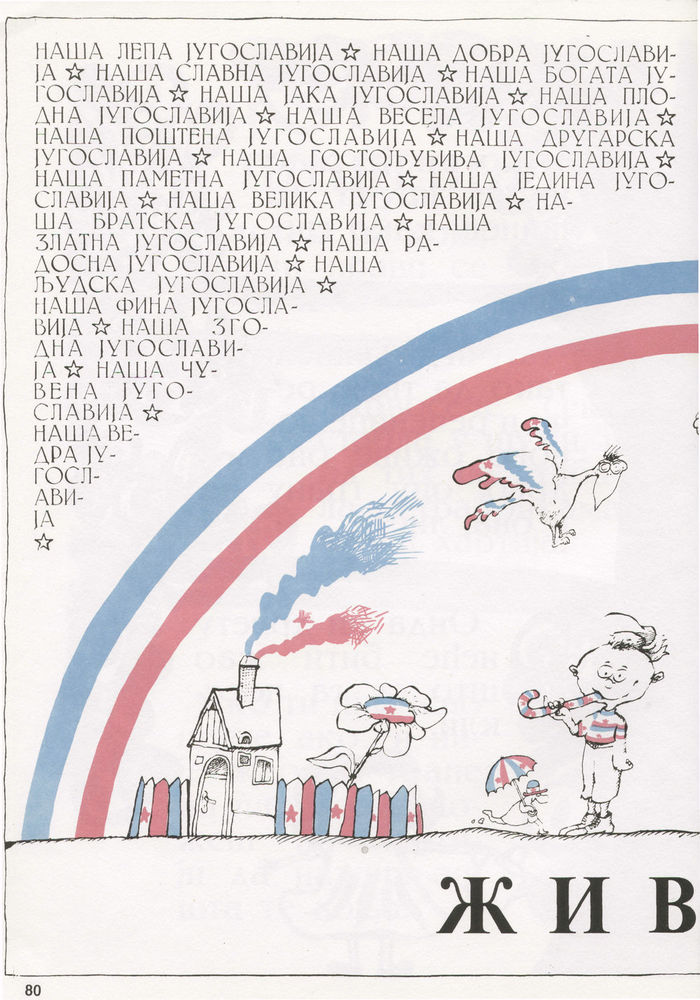 НАША ЛЕПА ЈУГОСЛАВИЈА ☆ НАША ДОБРА ЈУГОСЛАВИ-
ЈА ☆ НАША СЛАВНА ЈУГОСЛАВИЈА ☆ НАША БОГАТА ЈУ-
ГОСЛАВИЈА ☆ НАША ЈАКА ЈУГОСЛАВИЈА ☆ НАША ПЛО-
ДНА ЈУГОСЛАВИЈА ☆ НАША ВЕСЕЛА ЈУГОСЛАВИЈА ☆
НАША ПОШТЕНА ЈУГОСЛАВИЈА ☆ НАША ДРУГАРСКА
ЈУГОСЛАВИЈА ☆ НАША ГОСТОЉУБИВА ЈУГОСЛАВИЈА ☆
НАША ПАМЕТНА ЈУГОСЛАВИЈА ☆ НАША ЈЕДИНА ЈУГО-
СЛАВИЈА ☆ НАША ВЕЛИКА ЈУГОСЛАВИЈА ☆ НА-
ША БРАТСКА ЈУГОСЛАВИЈА ☆ НАША
ЗЛАТНА ЈУГОСЛАВИЈА ☆ НАША РА-
ДОСНА ЈУГОСЛАВИЈА ☆ НАША
ЉУДСКА ЈУГОСЛАВИЈА ☆
НАША ФИНА ЈУГОСЛА-
ВИЈА ☆ НАША ЗГО-
ДНА ЈУГОСЛАВИ-
ЈА ☆ НАША ЧУ-
ВЕНА ЈУГО-
СЛАВИЈА ☆
НАША ВЕ-
ДРА ЈУ-
ГОСЛ-
АВИ-
ЈА
☆
ЖИВ
80